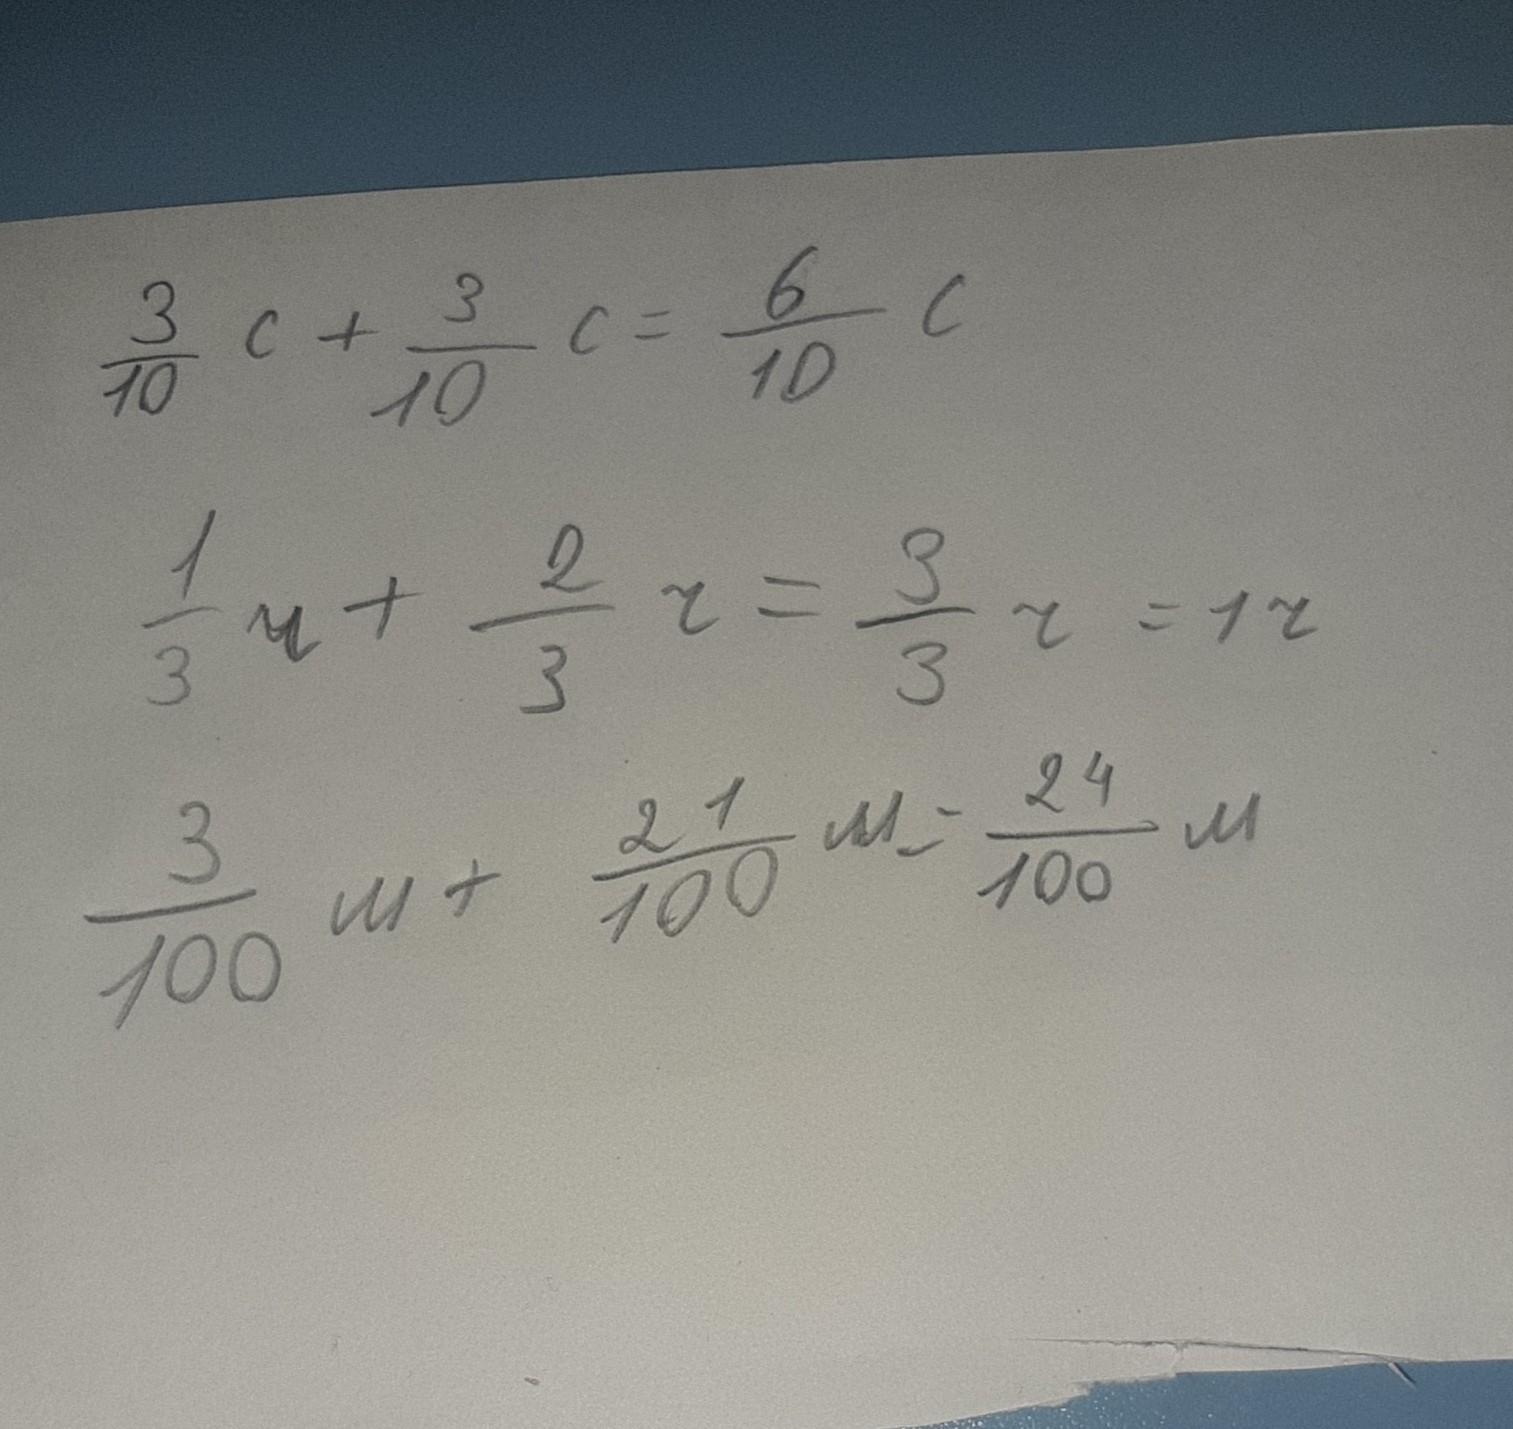 3/10 с + 3/10 с = 6/10 с
1/3 ч + 2/3 ч = 3/3 ч = 1 ч
3/100 м + 21/100 м = 24/100 м